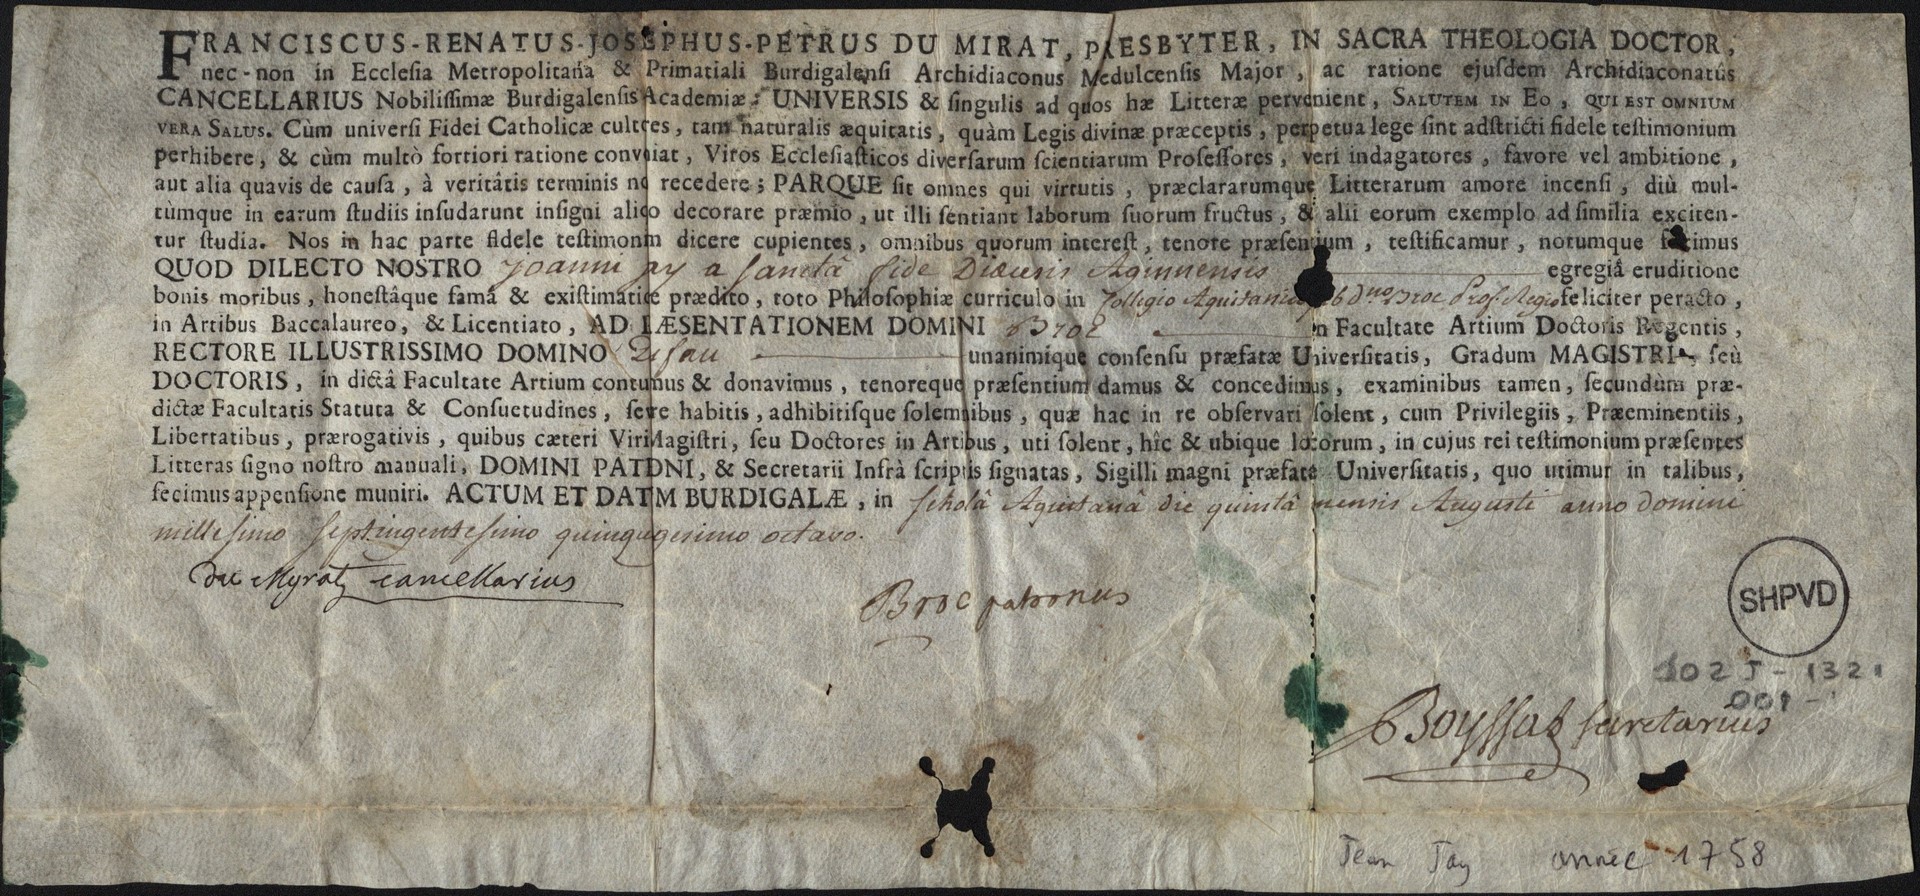 FRANCISCUS-RENATUS-JOSEPHUS-PETRUS DU MIRAT, PRESBYTER, IN SACRA THEOLOGIA DOCTOR,
nec-non in Ecclesia Metropolitana & Primatiali Burdigalensi Archidiaconus Medulcensis Major, ac ratione ejusdem Archidiaconatûs
CANCELLARIUS Nobilissimæ Burdigalensis Academiæ: UNIVERSIS & singulis ad quos hæ Litteræ pervenient, SALUTEM IN EO, QUI EST OMNIUM
VERA SALUS. Cùm universi Fidei Catholicæ cultres, tam naturalis æquitatis, quàm Legis divinæ præceptis, perpetua lege sint adstricti fidele testimonium
perhibere, & cùm multò fortiori ratione conveniat, Viros Ecclesiasticos diversarum scientiarum Professores, veri indagatores, favore vel ambitione,
aut alia quavis de causa, à veritâtis terminis no recedere; PARQUE sit omnes qui virtutis, præclararumque Litterarum amore incensi, diù mul-
tùmque in earum studiis insudarunt insigni aliqo decorare præmio, ut illi sentiant laborum suorum fructus, & alii eorum exemplo ad similia exciten-
tur studia. Nos in hac parte fidele testimonm dicere cupientes, omnibus quorum interest, tenore præsentium, testificamur, notumque facimus
QUOD DILECTO NOSTRO Joanni Jay a Sanctâ fide Diœcesis Aginnensis egregiâ eruditione
bonis moribus, honestâque famâ & existimatie prædito, toto Philosophiæ curriculo in Collegio Aquitanico sub dno Broc Prof. Regio feliciter peracto,
in Artibus Baccalaureo, & Licentiato, AD LÆSENTATIONEM DOMINI Broc in Facultate Artium Doctoris Regentis,
RECTORE ILLUSTRISSIMO DOMINO unanimique consensu præfatæ Universitatis, Gradum MAGISTRI, seù
DOCTORIS, in dictâ Facultate Artium contumus & donavimus, tenoreque præsentium damus & concedimus, examinibus tamen, secundùm præ-
dictæ Facultatis Statuta & Consuetudines, severe habitis, adhibitisque solemnibus, quæ hac in re observari solent, cum Privilegiis, Præeminentiis,
Libertatibus, prærogativis, quibus cæteri Viri Magistri, seu Doctores in Artibus, uti solent, hîc & ubique locorum, in cujus rei testimonium præsentes
Litteras signo nostro manuali, DOMINI PATONI, & Secretarii Infrà scriptis signatas, Sigilli magni præfatæ Universitatis, quo utimur in talibus,
fecimus appensione muniri. ACTUM ET DATM BURDIGALÆ, in scholâ Aquitanâ die quintâ mensis Augusti anno Domini
millesimo septingentesimo quinquagesimo octavo.
du Myrat cancellarius
Broc patronus
SHPVD
102 J - 1321
001 -
Boyssat secretarius
Jean Jay année 1758